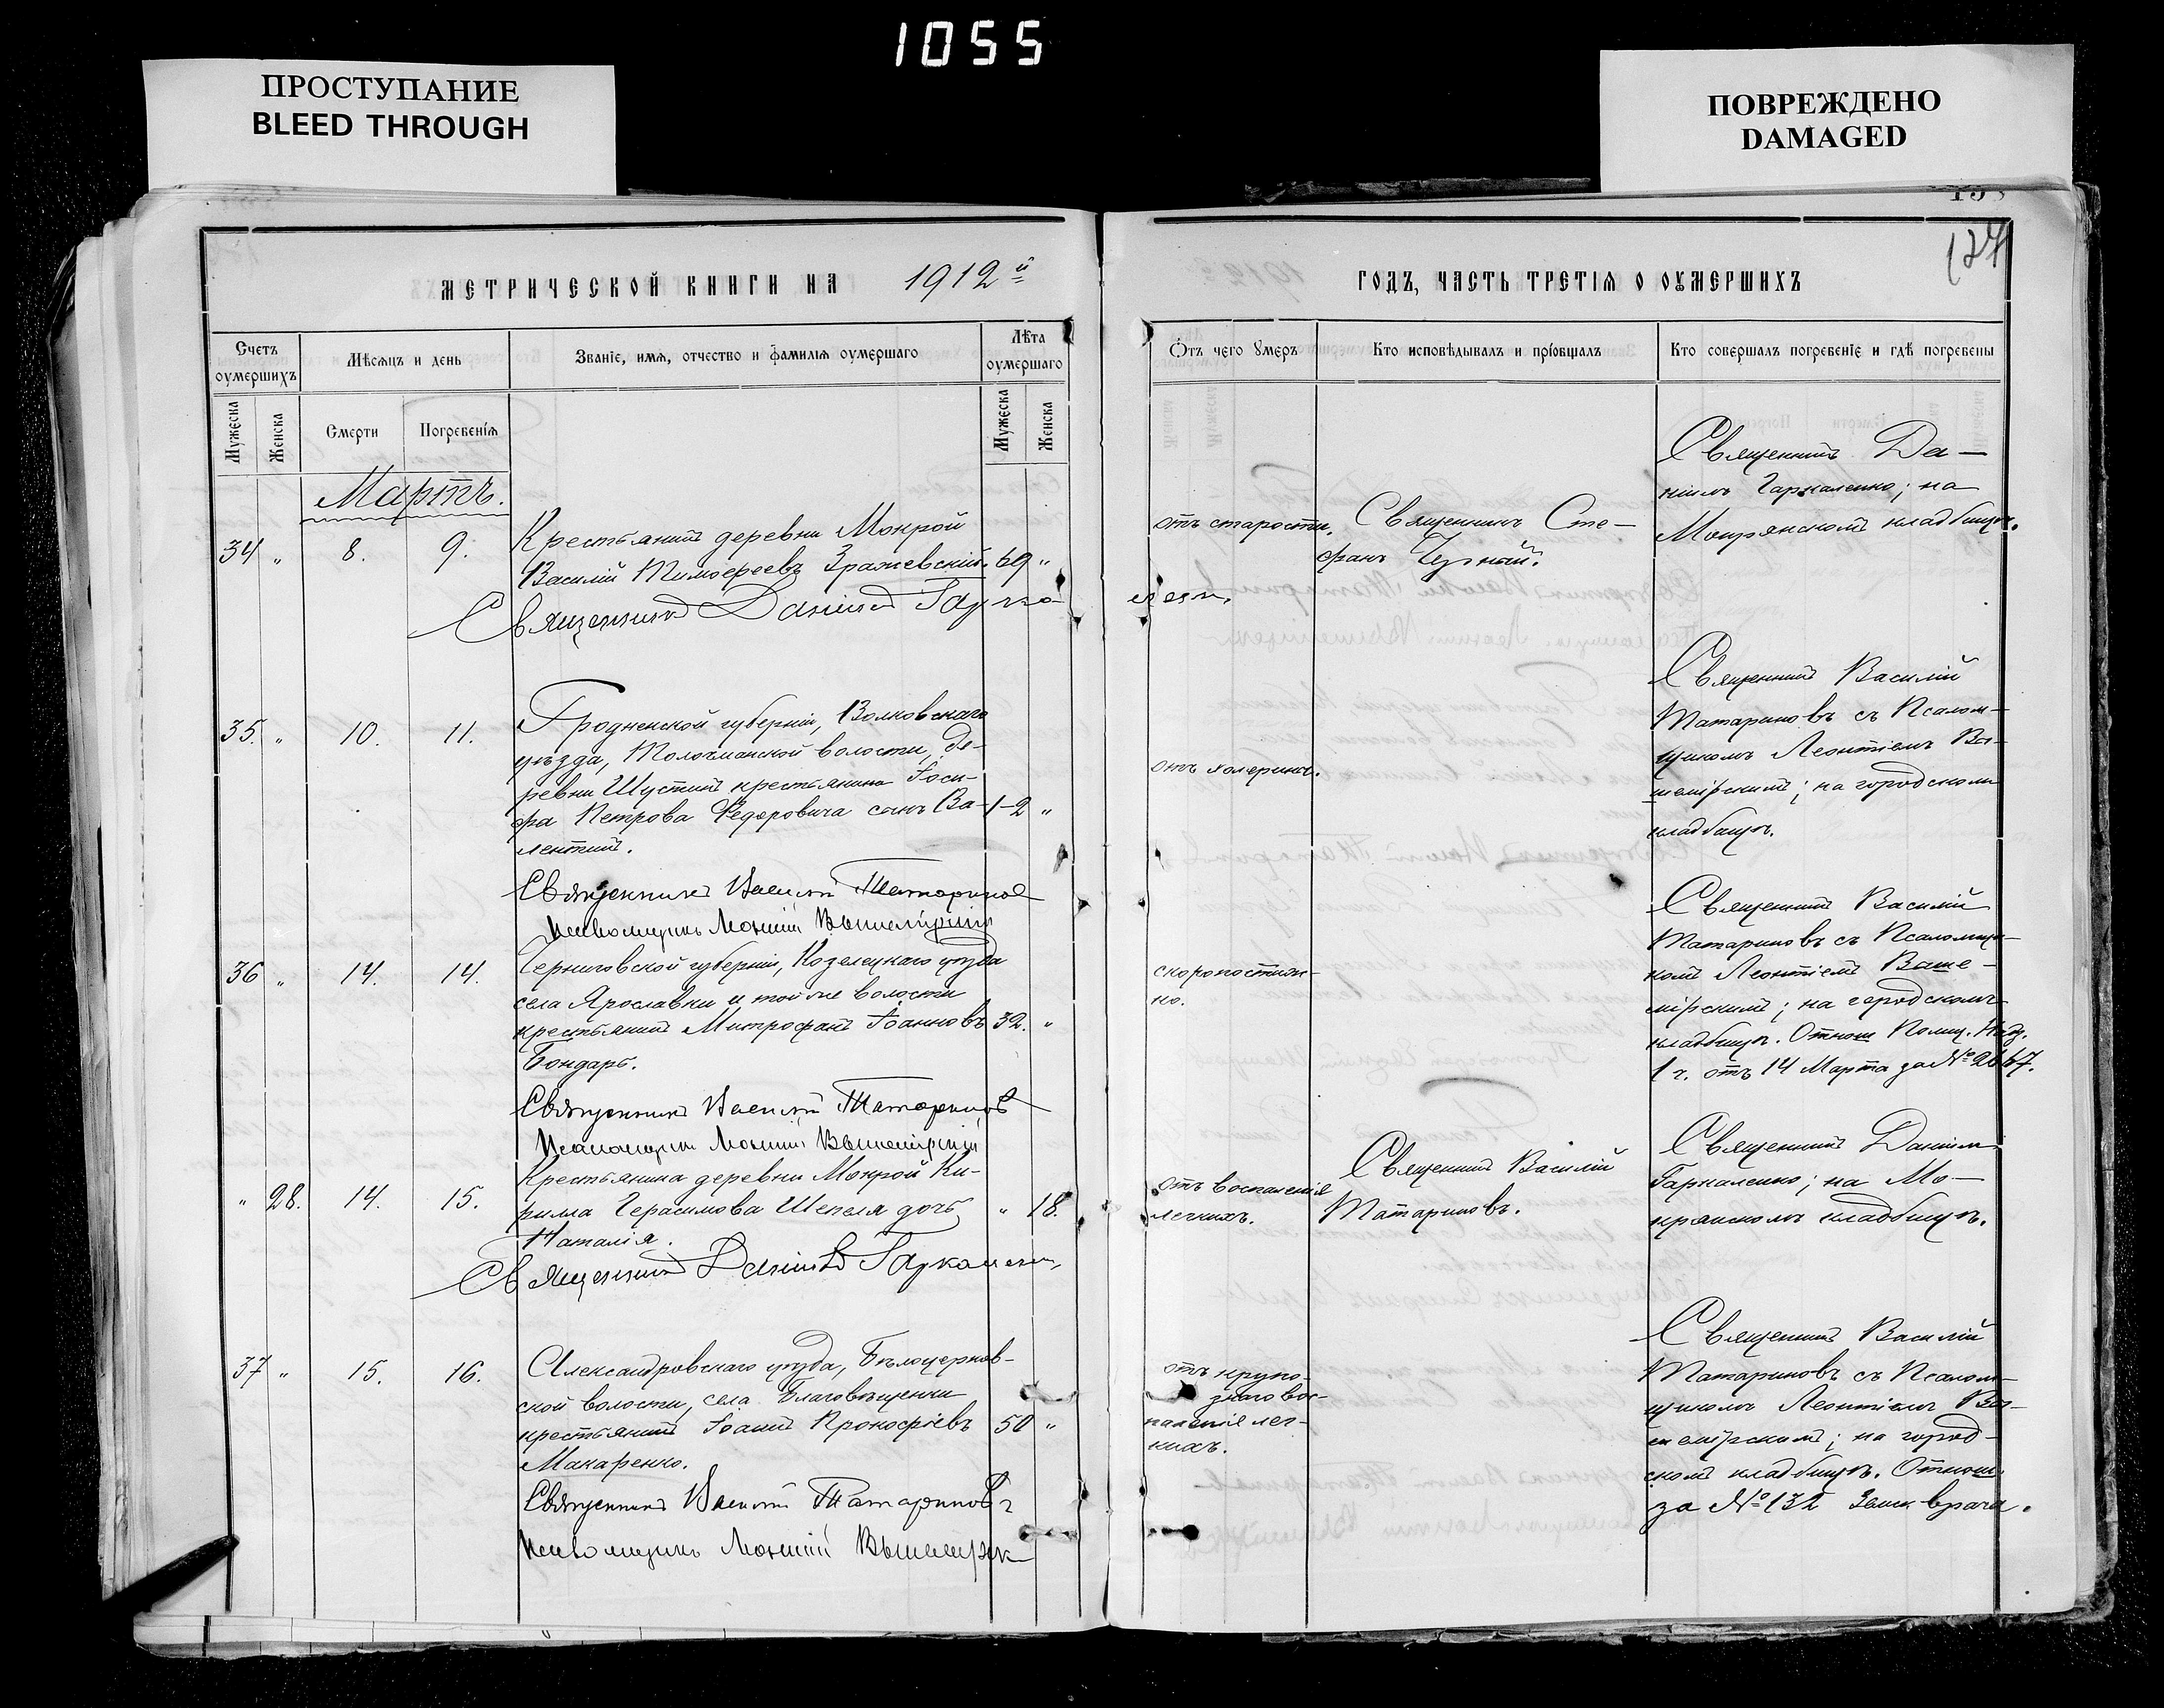 1055
ПРОСТУПАНИЕ
BLEED THROUGH
ПОВРЕЖДЕНО
DAMAGED
127
МЕТРИЧЕСКОЙ КНИГИ НА 1912й
ГОДЪ, ЧАСТЬ ТРЕТІѦ О ОУМЕРШИХЪ
Счетъ
оумершихъ
Мѣсяцъ и день
Званіе, имя, отчество и фамилія оумершаго
Лѣта
оумершаго
Отъ чего умеръ
Кто исповѣдывалъ и пріобщалъ
Кто совершалъ погребеніе и гдѣ погребены
Мужеска
Женска
Смерти
Погребенія
Мужеска
Женска
Мартъ.
34 „ 8. 9.
Крестьянинъ деревни Мокрой
Василій Тимофеевъ Зражевскій. 69 „
Священникъ Даніилъ Гаркаленко.
отъ старости.
Священникъ Сте-
фанъ Черный.
Священникъ Да-
ніилъ Гаркаленко; на
Мокрянскомъ кладбищѣ.
35. „ 10. 11.
Гродненской губерніи, Волковскаго
уѣзда, Толочманской волости, де-
ревни Шустики крестьянина Іоси-
фа Петрова Федоровича сынъ Ва- 1-2 „
лентинъ.
Священникъ Василій Татариновъ
Псаломщикъ Леонтій Вышемірскій
отъ холерины.
Священникъ Василій
Татариновъ съ Псалом-
щикомъ Леонтіемъ Вы-
шемірскимъ; на городскомъ
кладбищѣ.
36 „ 14. 14.
Черниговской губерніи, Козелецкаго уѣзда
села Ярославки и той же волости
крестьянинъ Митрофанъ Іоанновъ 32. „
Бондарь.
Священникъ Василій Татариновъ
Псаломщикъ Леонтій Вышемірскій
скоропостиж-
но.
Священникъ Василій
Татариновъ съ Псаломщи-
комъ Леонтіемъ Выше-
мірскимъ; на городскомъ
кладбищѣ. Отнош. Полиц. Надз.
1 ч. отъ 14 Марта за № 2667.
„ 28. 14. 15.
Крестьянина деревни Мокрой Ки-
рилла Герасимова Шепеля дочь „ 18.
Наталія.
Священникъ Даніилъ Гаркаленко
отъ воспаленія
легкихъ.
Священникъ Василій
Татариновъ.
Священникъ Даніилъ
Гаркаленко; на Мо-
крянскомъ кладбищѣ.
37 „ 15. 16.
Александровскаго уѣзда, Бѣлоцерков-
ской волости, села Благовѣщенки
крестьянинъ Іоаннъ Прокофіевъ 50 „
Макаренко.
Священникъ Василій Татариновъ
Псаломщикъ Леонтій Вышемірск
отъ крупо-
знаго вос-
паленія лег-
кихъ.
Священникъ Василій
Татариновъ съ Псалом-
щикомъ Леонтіемъ Вы-
шемірскимъ; на город-
скомъ кладбищѣ. Отнош.
за № 132 Земск. врача.